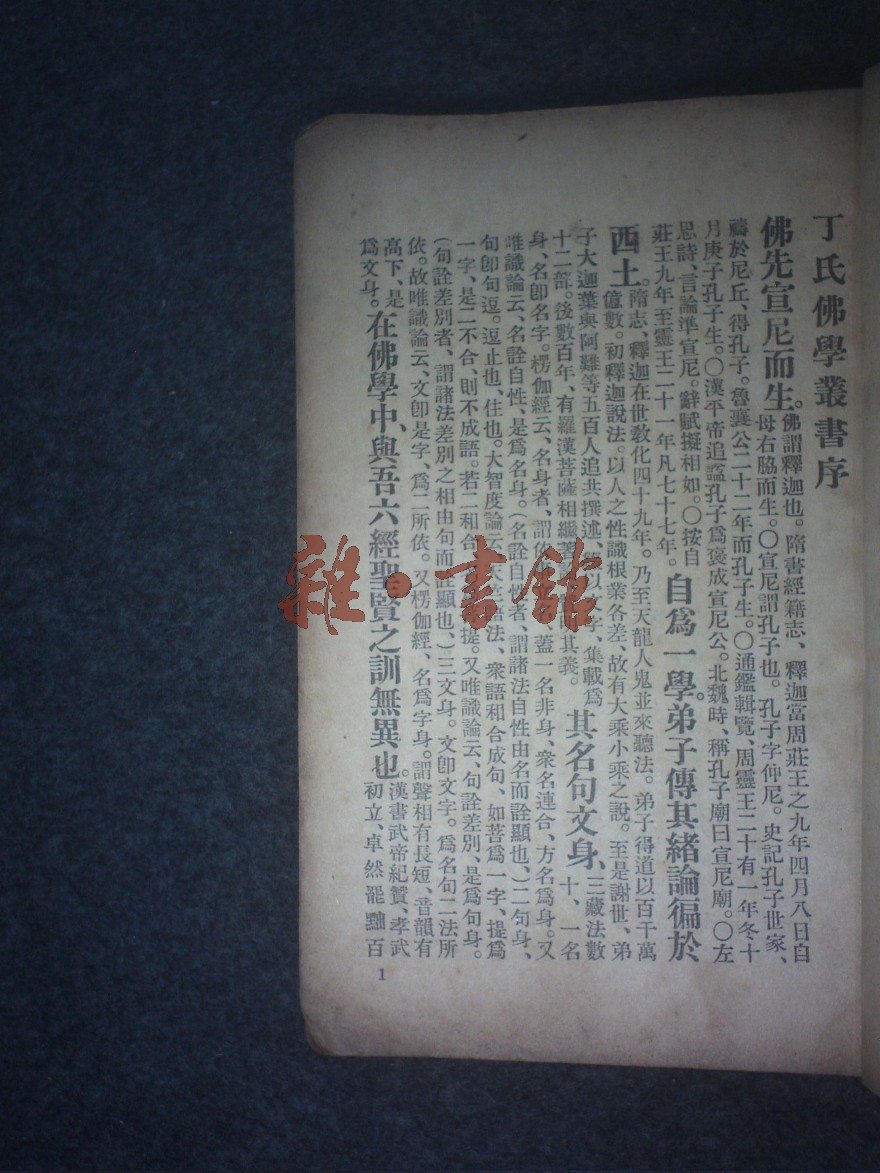 丁氏佛學叢書序
佛先宣尼而生。佛謂釋迦也。隋書經籍志、釋迦當周莊王之九年四月八日自
母右脇而生。〇宣尼謂孔子也。孔子字仲尼。史記孔子世家、
禱於尼丘、得孔子。魯襄公二十二年而孔子生。〇通鑑輯覽、周靈王二十有一年冬十
月庚子孔子生。〇漢平帝追諡孔子爲褒成宣尼公。北魏時、稱孔子廟曰宣尼廟。〇左
思詩、言論準宣尼。辭賦擬相如。〇按自
莊王九年至靈王二十一年凡七十七年。
自爲一學。弟子傳其緒論徧於
西土。隋志、釋迦在世敎化四十九年。乃至天龍人鬼並來聽法。弟子得道以百千萬
億數。初釋迦說法。以人之性識根業各差、故有大乘小乘之說。至是謝世、弟
子大迦葉與阿難等五百人追共撰述、以字、集載爲
十二部。後數百年、有羅漢菩薩相繼著其義。
其名句文身、三藏法數
十、一名
身、名卽名字。楞伽經云、名身者、謂依蓋一名非身、衆名連合、方名爲身。又
唯識論云、名詮自性、是爲名身。(名詮自性者、謂諸法自性由名而詮顯也、)二句身、
句卽句逗。逗止也、住也。大智度論云、天竺語法、衆語和合成句、如菩爲一字、提爲
一字、是二不合、則不成語。若二和合提。又唯識論云、句詮差別、是爲句身。
(句詮差別者、謂諸法差別之相由句而詮顯也、)三文身。文卽文字。爲名句二法所
依。故唯識論云、文卽是字、爲二所依。又楞伽經、名爲字身。謂聲相有長短、音韻有
高下、是
爲文身。
在佛學中、與吾六經聖賢之訓無異也。漢書武帝紀贊、孝武
初立、卓然罷黜百
1
雜·書館